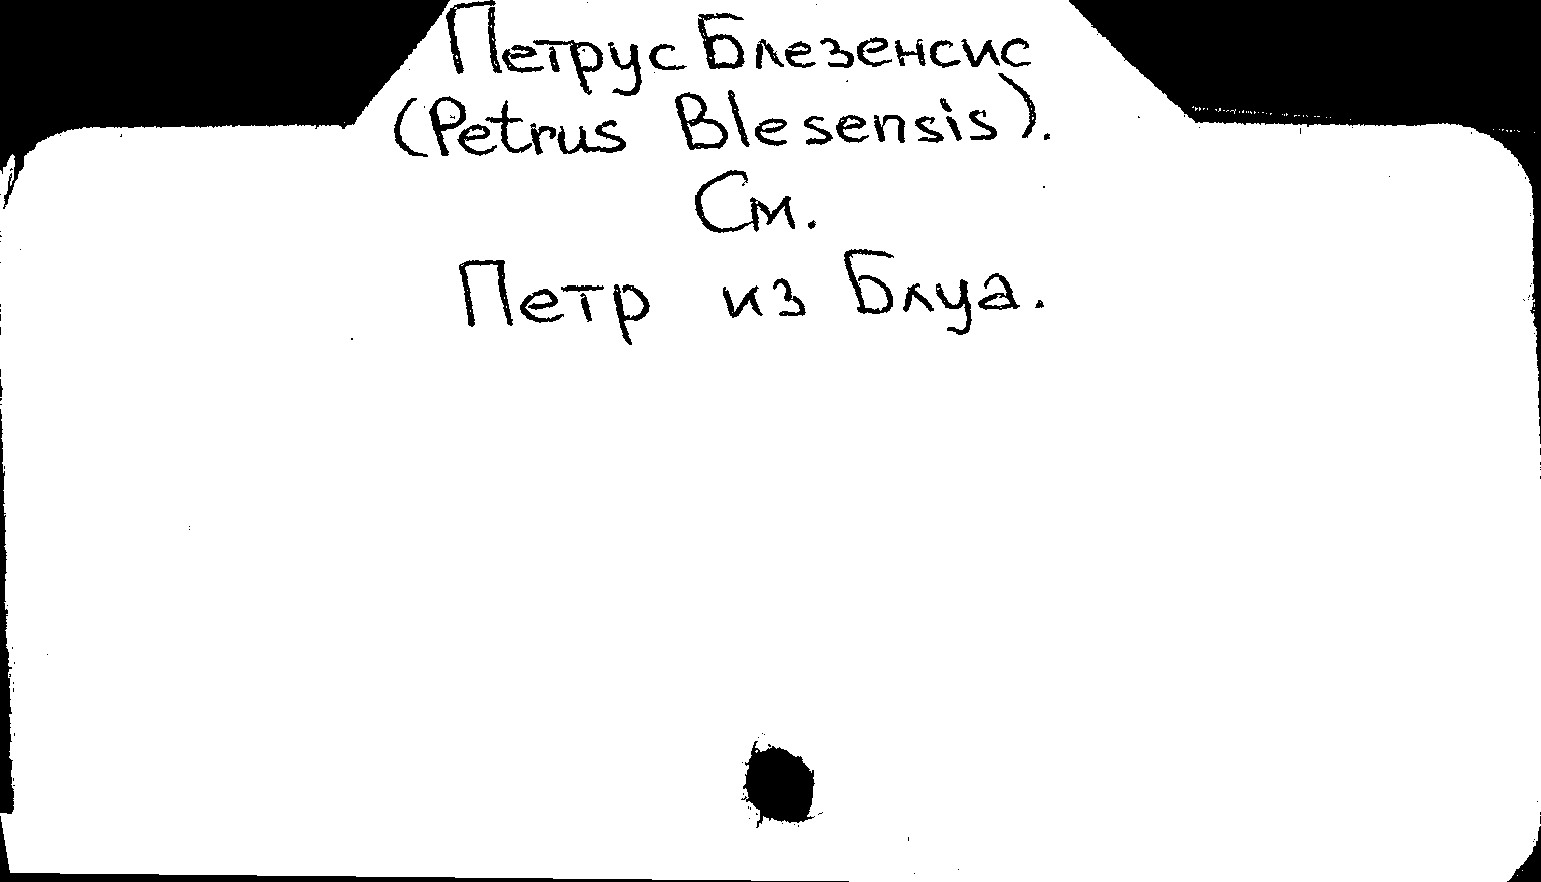 Петрус Блезенсис
(Petrus Blesensis).
См.
Петр из Блуа.